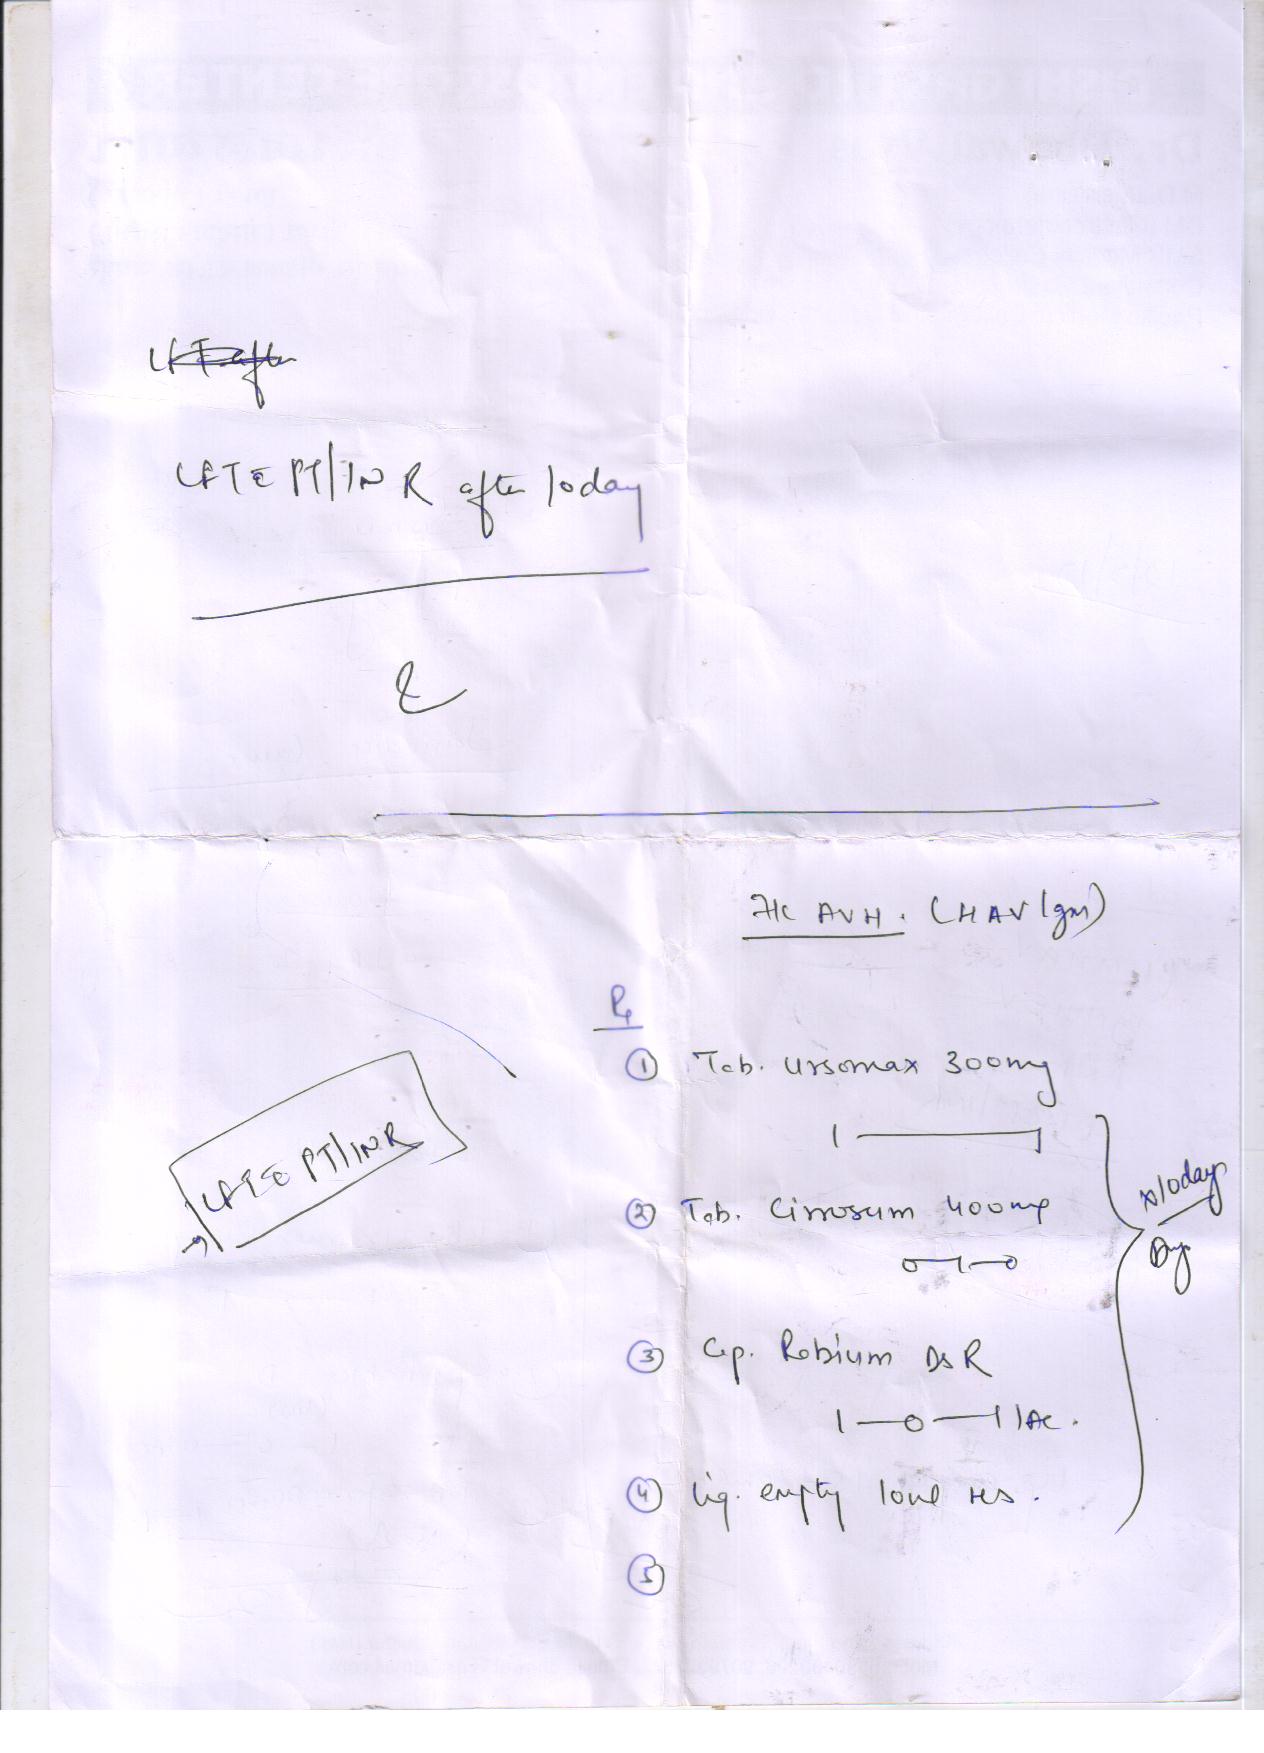 LFT E PT/INR after 10 day
AVH. (HAV Igm)
Rx
① Tab. Ursomax 300mg
1 — 1
② Tab. Cirrosum 400mg
0—1—0
x 10 days
③ Cap. Robium DSR
1—0—1 1AC.
④ Liq. empty
⑤
LFT E PT/INR